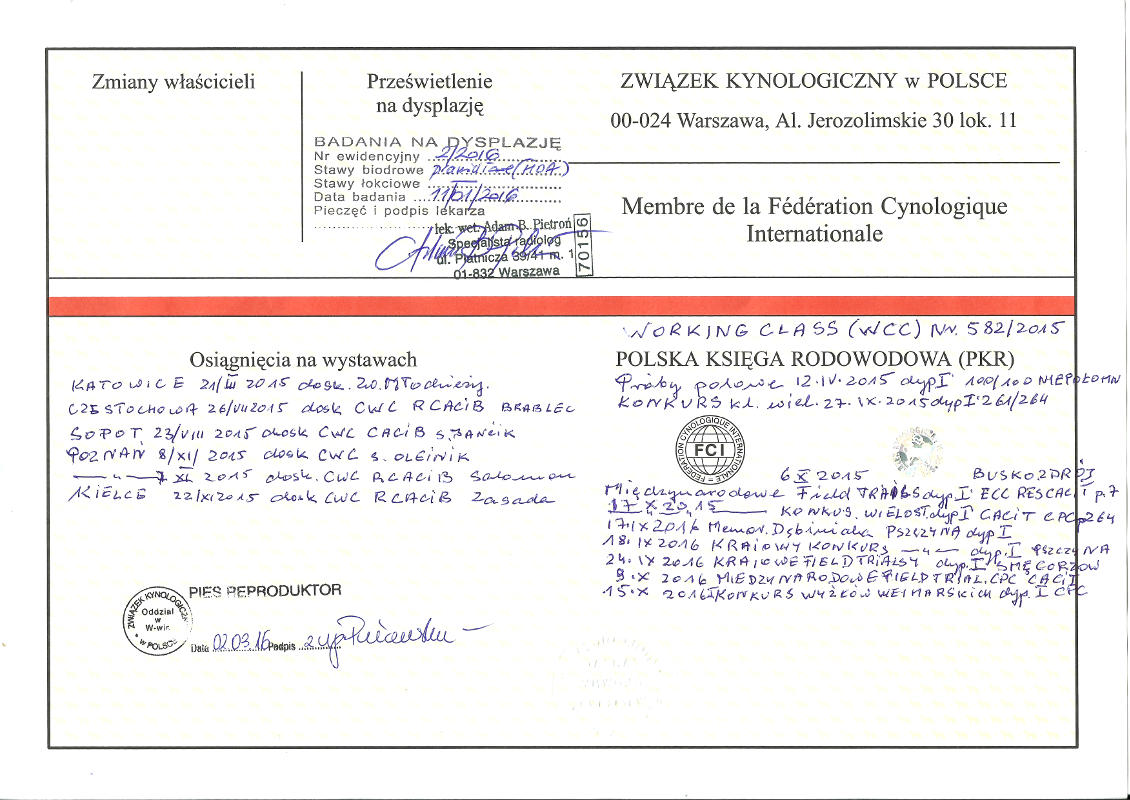 Zmiany właścicieli
Prześwietlenie
na dysplazję
BADANIA NA DYSPLAZJĘ
Nr ewidencyjny 2/2016
Stawy biodrowe (HD A)
Stawy łokciowe
Data badania 11/01/2016
Pieczęć i podpis lekarza
lek. wet. Adam B. Pietroń
Specjalista radiolog
ul. Płatnicza 39/41 m. 1
01-832 Warszawa
70156
ZWIĄZEK KYNOLOGICZNY w POLSCE
00-024 Warszawa, Al. Jerozolimskie 30 lok. 11
Membre de la Fédération Cynologique
Internationale
Osiągnięcia na wystawach
KATOWICE 21/III 2015 dosk. Zw. Młodzieży.
CZĘSTOCHOWA 26/VII 2015 dosk CWC RCACIB BRABLEC
SOPOT 23/VIII 2015 dosk CWC CACIB
POZNAŃ 8/XI/ 2015 dosk CWC S. OLEJNIK
—〃— 7 XI 2015 dosk. CWC RCACIB Salomon
KIELCE 22/XI 2015 dosk CWC RCACIB Zasada
ZWIĄZEK KYNOLOGICZNY
Oddział
w
W-wie
w POLSCE
PIES REPRODUKTOR
Data 02.03.16 Podpis
WORKING CLASS (WCC) Nr. 582/2015
POLSKA KSIĘGA RODOWODOWA (PKR)
Próby polowe 12.IV.2015 dyp I° 100/100 NIEPOŁOM
KONKURS kl. wiel. 27.IX.2015 dyp I° 261/264
FÉDÉRATION CYNOLOGIQUE INTERNATIONALE
FCI
6 X 2015 BUSKO ZDRÓJ
Międzynarodowe Field TRAILS dyp. I° ECC RES CACIT p. 7
17 X 2015 — KONKUS. WIELOST. dyp I° CACIT CPC p 264
17.IX 2016 Memor. Dębiniaka PSZCZYNA dyp I
18.IX 2016 KRAJOWY KONKURS —〃— dyp. I PSZCZYNA
24.IX 2016 KRAJOWE FIELD TRIALSY dyp. I SMĘGORZÓW
9.X 2016 MIĘDZYNARODOWE FIELD TRIAL. CPC CACIT
15.X 2016 I KONKURS WYŻŁÓW WEIMARSKICH dyp. I CPC